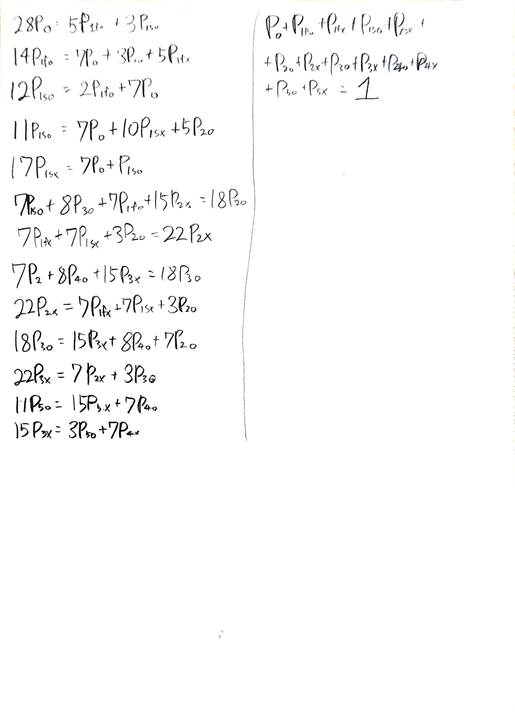 28P₀ = 5P₁fₒ + 3P₁sₒ
14P₁fₒ = 7P₀ + 3P₁ₛₒ + 5P₁fₓ
12P₁sₒ = 2P₁fₒ + 7P₀
11P₁sₒ = 7P₀ + 10P₁sₓ + 5P₂ₒ
17P₁sₓ = 7P₀ + P₁sₒ
7P₁sₒ + 8P₃ₒ + 7P₁fₒ + 15P₂ₓ = 18P₂ₒ
7P₁fₓ + 7P₁sₓ + 3P₂ₒ = 22P₂ₓ
7P₂ + 8P₄ₒ + 15P₃ₓ = 18P₃ₒ
22P₂ₓ = 7P₁fₓ + 7P₁sₓ + 3P₂ₒ
18P₃ₒ = 15P₃ₓ + 8P₄ₒ + 7P₂ₒ
22P₃ₓ = 7P₂ₓ + 3P₃ₒ
11P₅ₒ = 15P₅ₓ + 7P₄ₒ
15P₅ₓ = 3P₅ₒ + 7P₄ₓ
P₀ + P₁fₒ + P₁fₓ + P₁sₒ + P₁sₓ +
+ P₂ₒ + P₂ₓ + P₃ₒ + P₃ₓ + P₄ₒ + P₄ₓ
+ P₅ₒ + P₅ₓ = 1